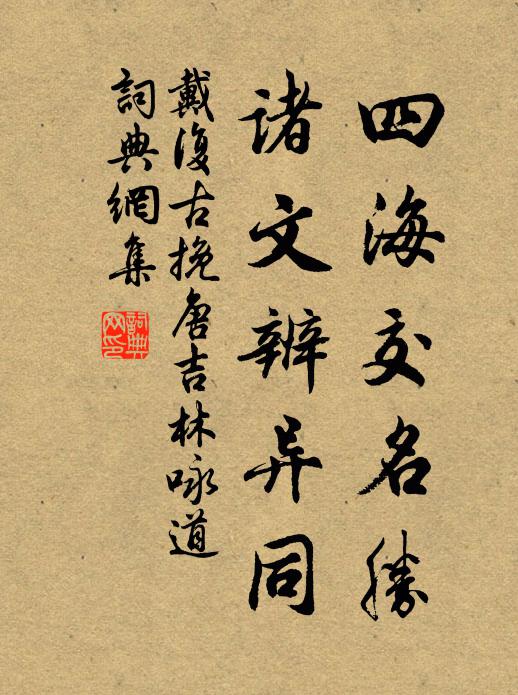 四海交名勝
諸文辨异同
戴復古挽唐吉林咏道
詞典網集
詞典
网印